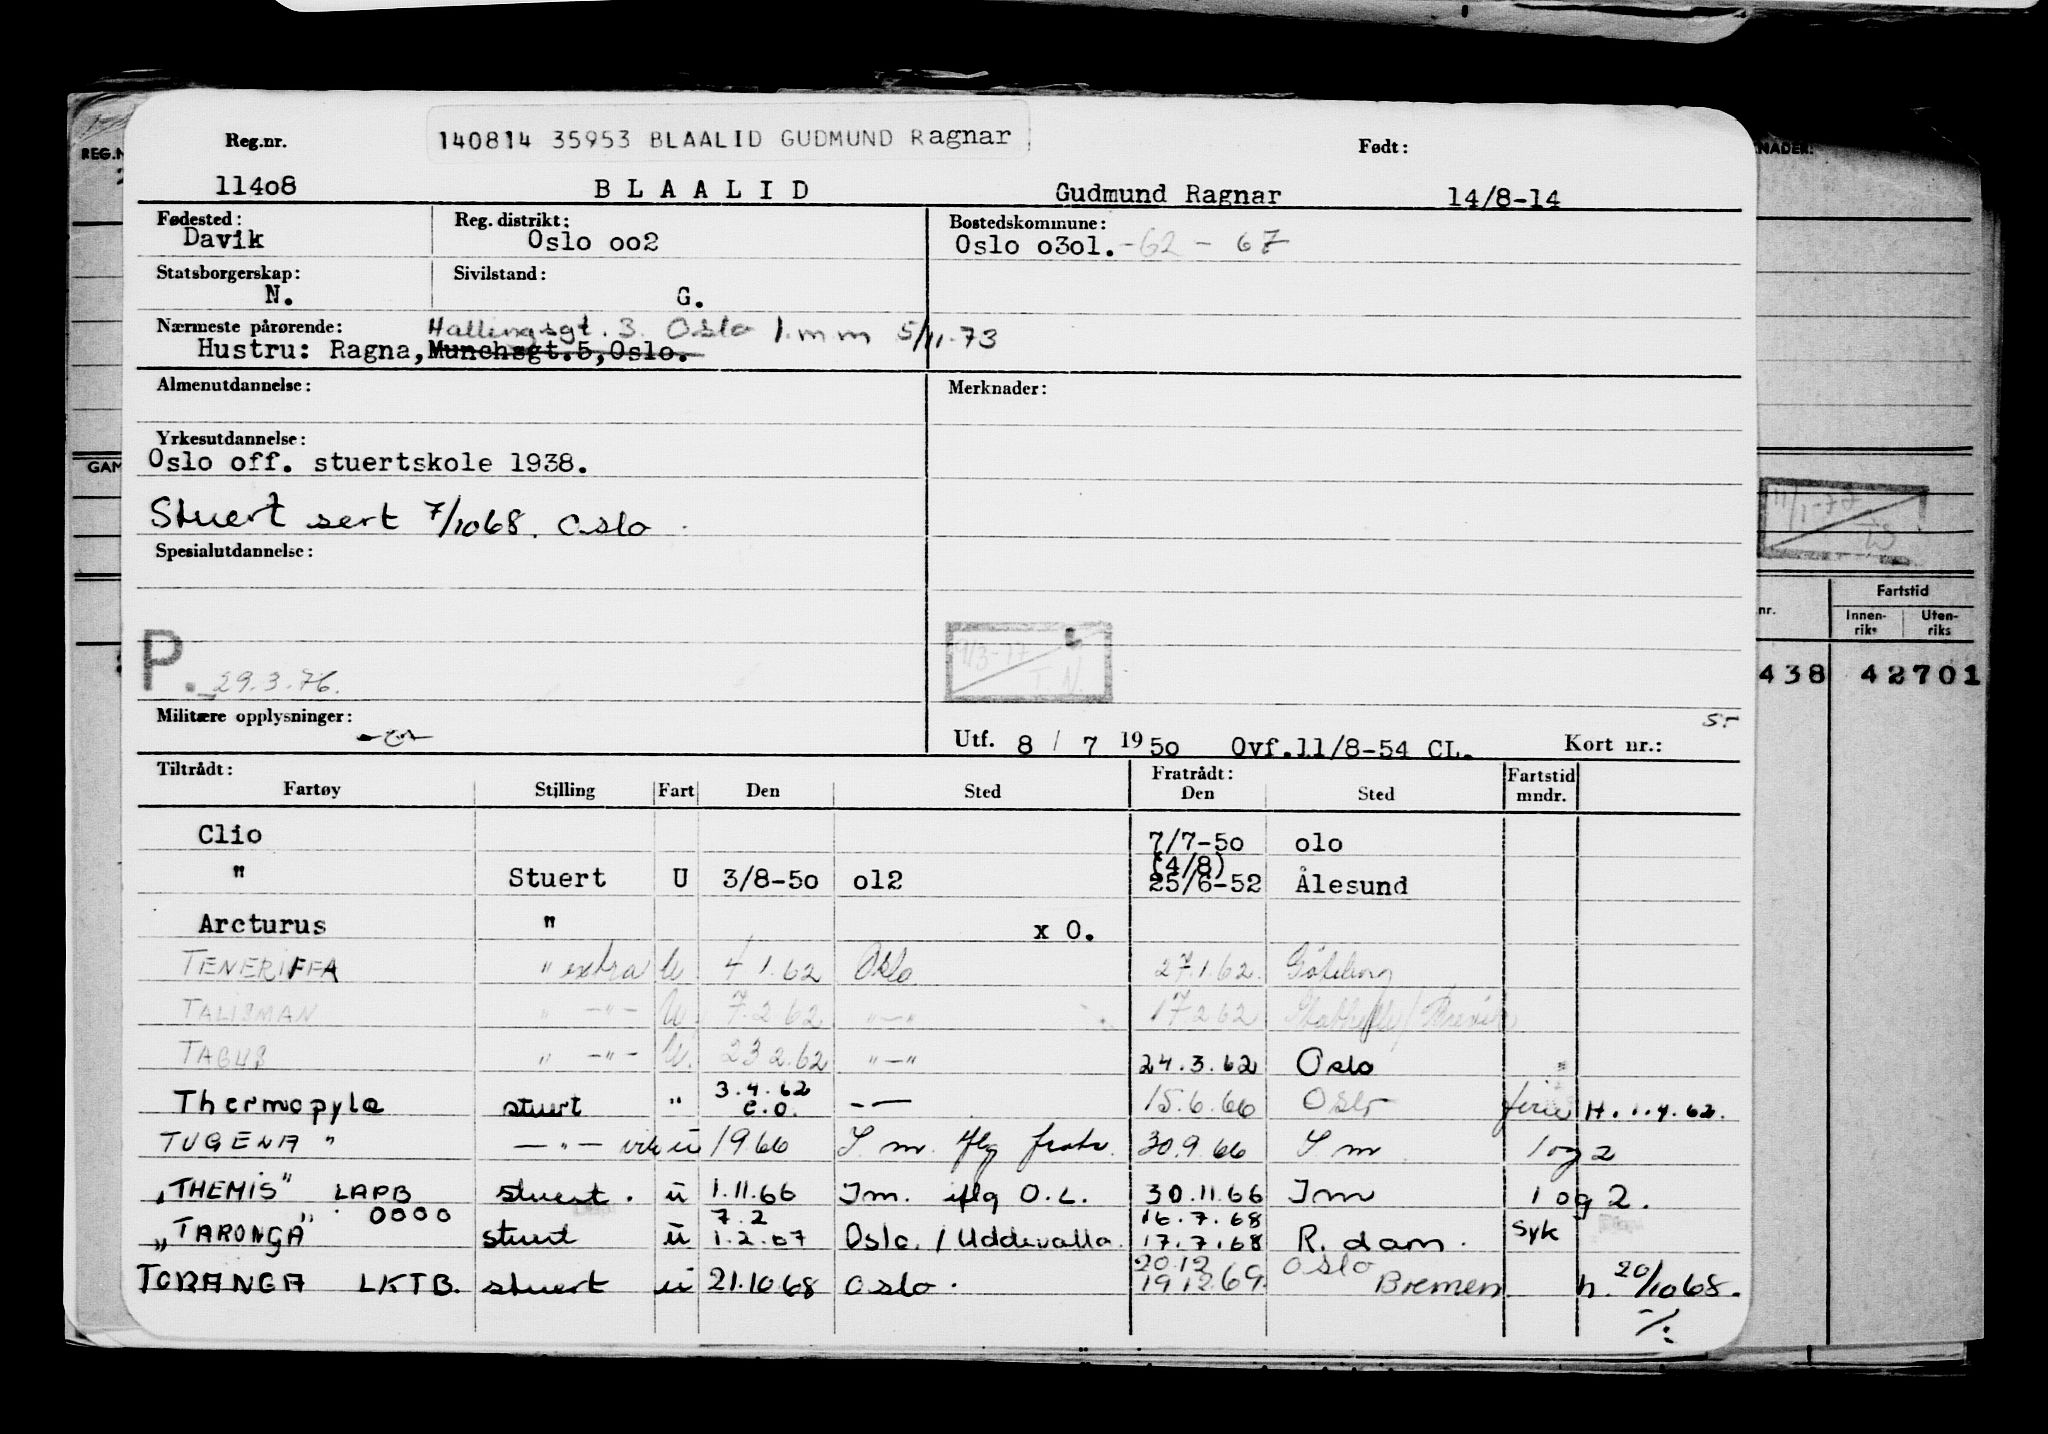 Reg.nr. 140814 35953 BLAALID GUDMUND Ragnar Født:
11408 BLAALID Gudmund Ragnar 14/8-14
Fødested: Reg. distrikt: Bostedskommune:
Davik Oslo 002 Oslo 0301. -62 - 67
Statsborgerskap: Sivilstand:
N. G.
Nærmeste pårørende: Hallingsgt. 3. Oslo 1.mm 5/11.73
Hustru: Ragna, Munchsgt.5, Oslo.
Almenutdannelse: Merknader:
Yrkesutdannelse:
Oslo off. stuertskole 1938.
Stuert sert 7/1068. Oslo
Spesialutdannelse:
P. 29.3.76.
Militære opplysninger:
Utf. 8 / 7 1950 Ovf.11/8-54 CL. Kort nr.:
Tiltrådt: Fratrådt: Fartstid
Fartøy Stilling Fart Den Sted Den Sted mndr.
Clio 7/7-50 olo
" Stuert U 3/8-50 ol2 (4/8) 25/6-52 Ålesund
Arcturus " x O.
TENERIFFA " extra U 4.1.62 Oslo 27.1.62.
TALISMAN " -"- U 7.2.62 "-" 17.2.62
TAGUS " -"- U. 23.2.62 "-" 24.3.62 Oslo "
Thermopylæ stuert " 3.4.62 e.o. — 15.6.66 Oslo ferie H. 1.4.62.
TUGENA " —"— vik ü 1966 I m. iflg fratr. 30.9.66 I m 1 og 2
"THEMIS" LAPB stuert. ü 1.11.66 Im. iflg O.L. 30.11.66 Im 1 og 2.
0000 7.2 16.7.68
"TARONGA" stuert ü 1.2.67 Oslo. / Uddevalla. 17.7.68 R.dam. Syk
20.12 Oslo
TORANGA LKTB. stuert ü 21.10.68 Oslo. 19.12.69. Bremen h. 20/1068.
REG.N
GAM
NADER:
11/1-77
nr. Fartstid
Innen-riks Uten-riks
438 42701